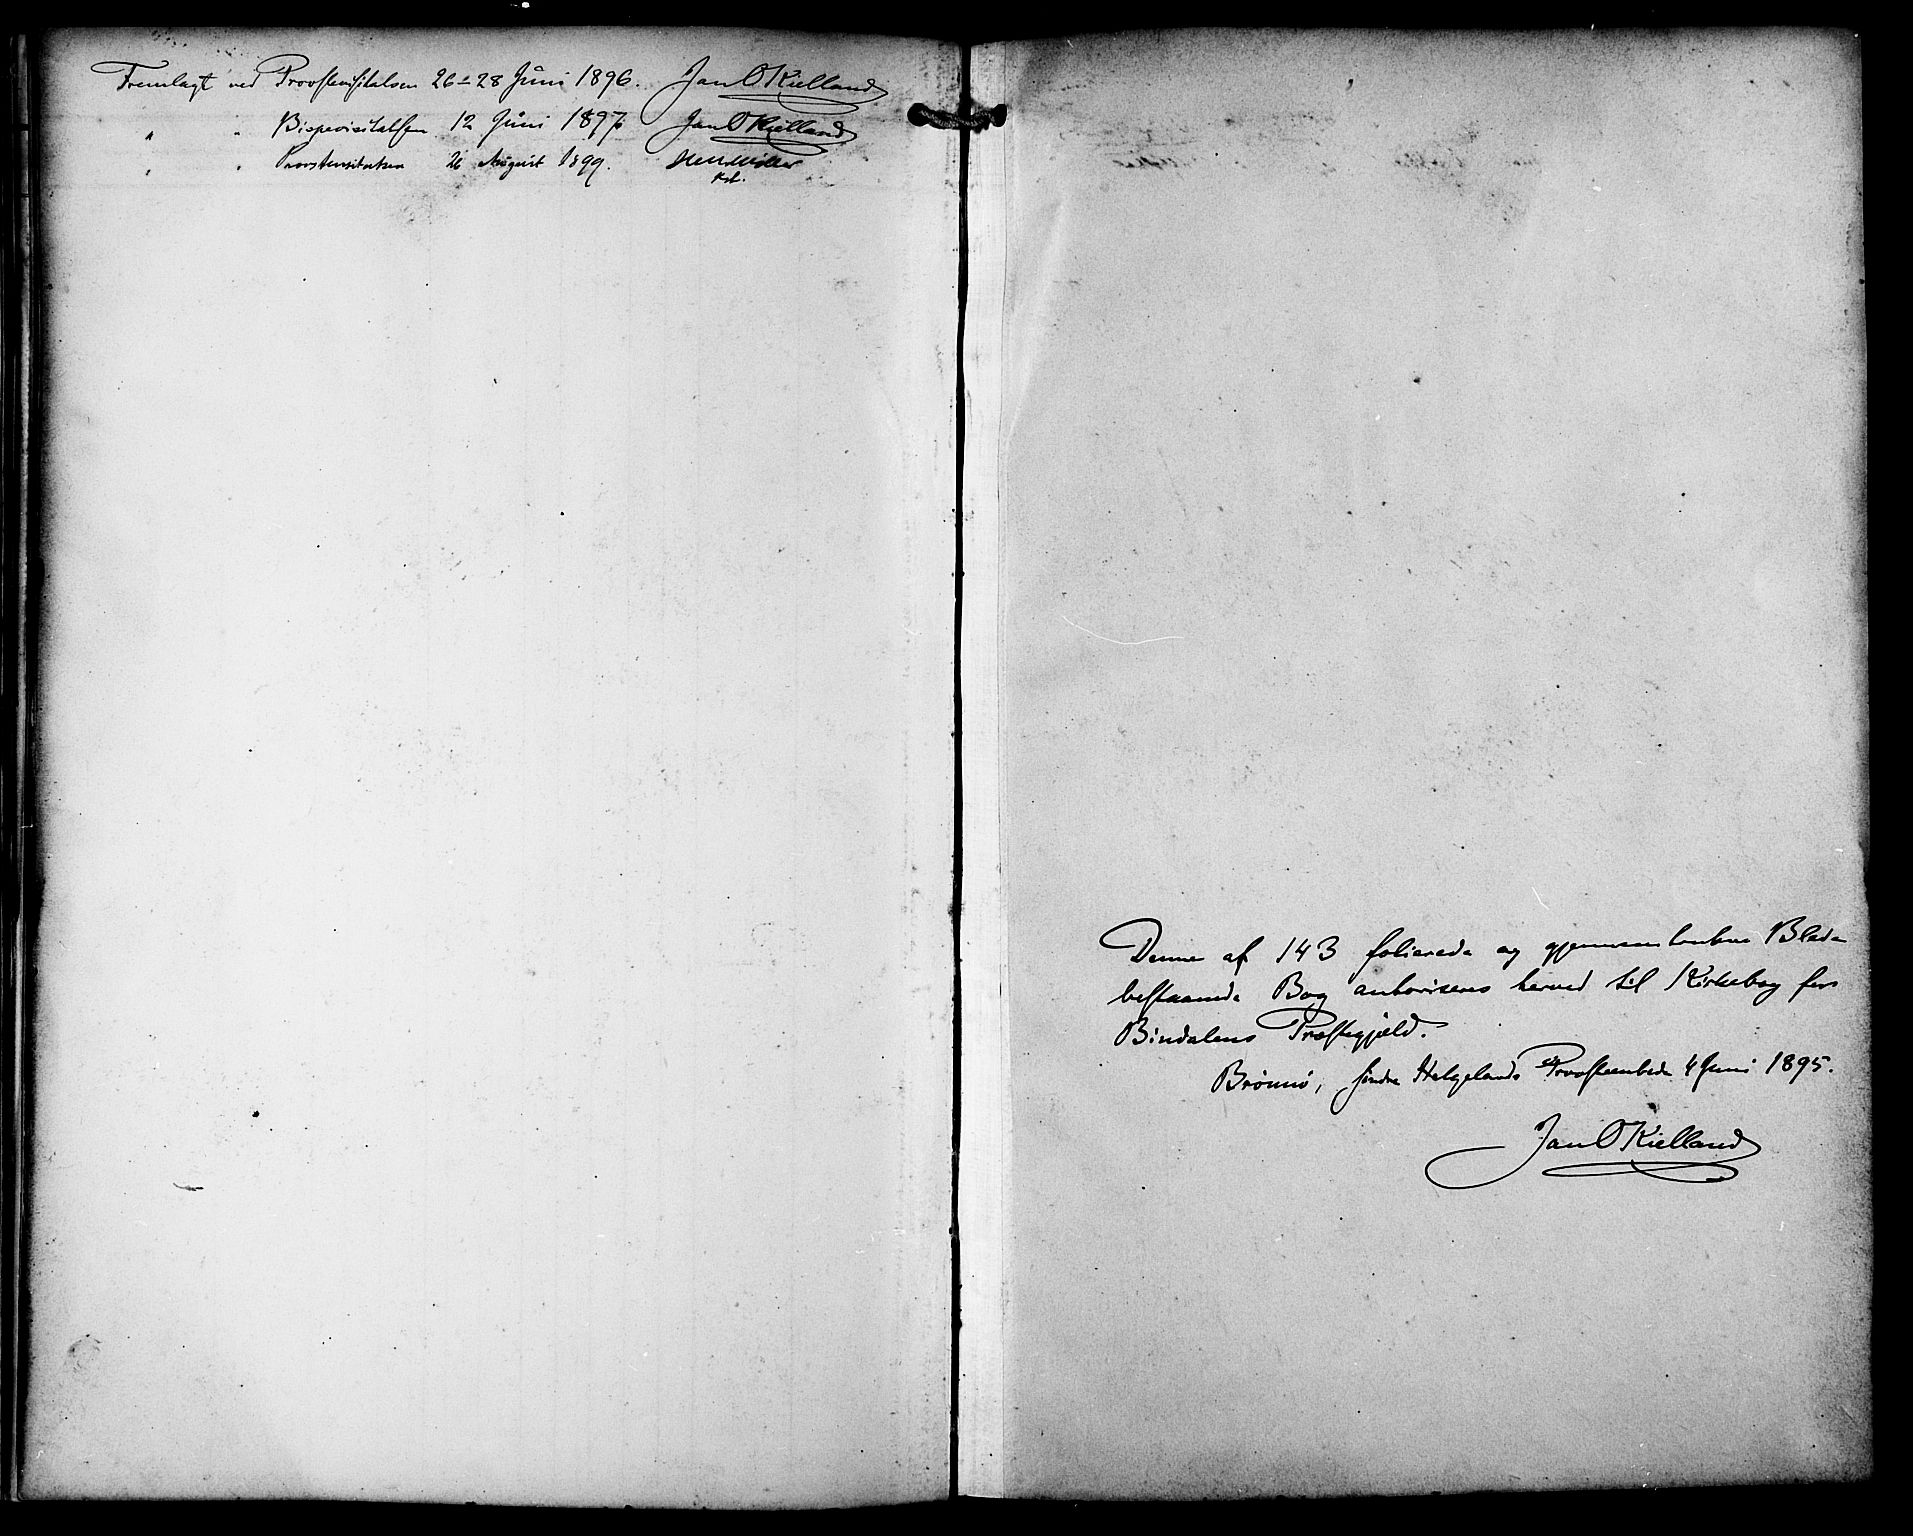 Fremlagt ved Provstevisitatsen 26-28 Juni 1896. Jan O Kielland
" " Bispevisitatsen 12 Juni 1897. Jan O Kielland
" " Provstevisitatsen 26 August 1899.
Denne af 143 folierede og gjennemtrukne Blade
bestaaende Bog autoriseres herved til Kirkebog for
Bindalens Præstegjæld.
Brönnö, söndre Helgelands Provsteembede 4 Juni 1895.
Jan O Kielland